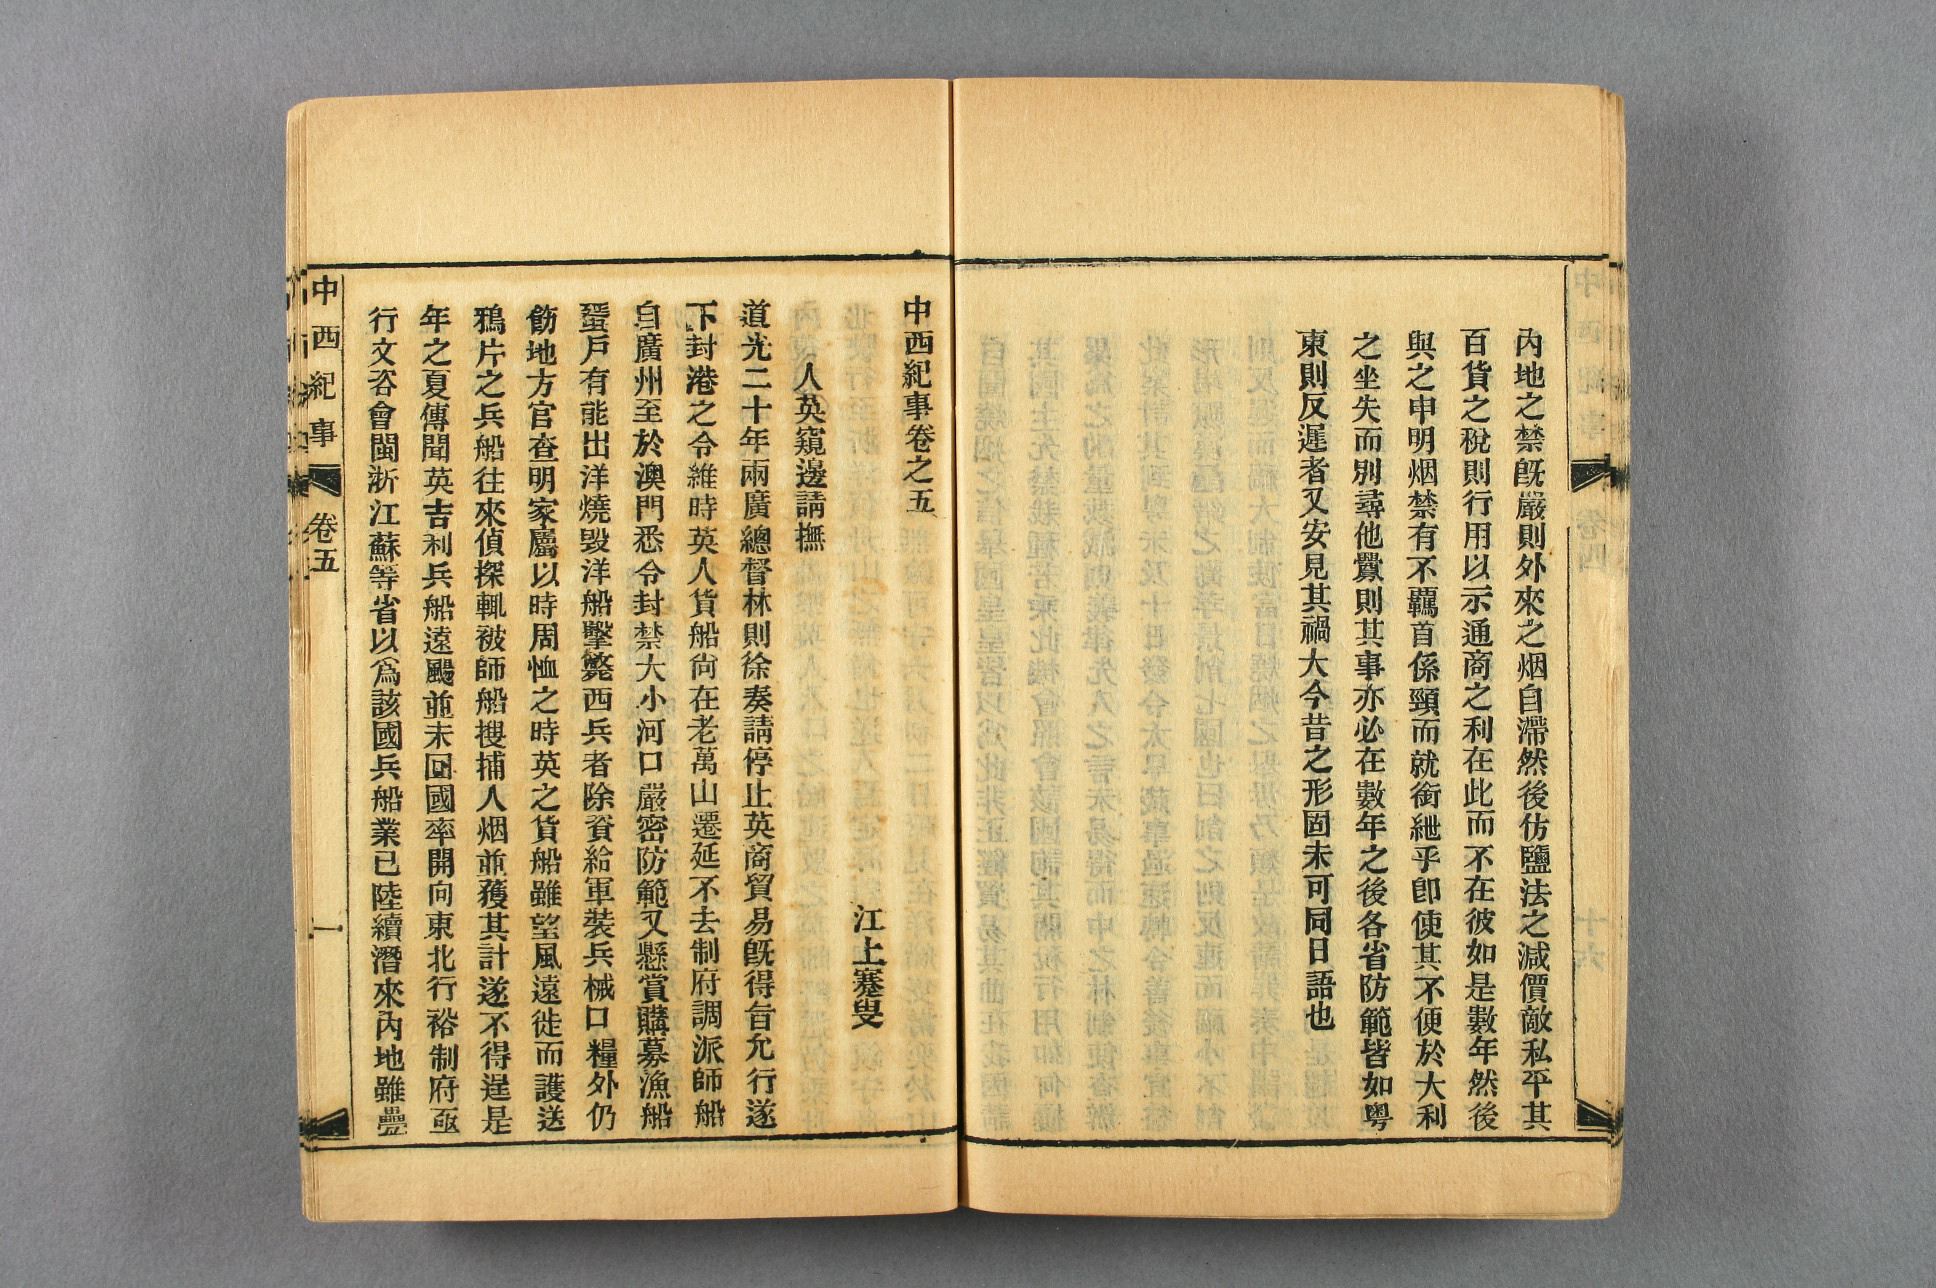 內地之禁旣嚴則外來之烟自滯然後仿鹽法之減價敵私平其
百貨之稅則行用以示通商之利在此而不在彼如是數年然後
與之申明烟禁有不羈首係頸而就銜紲乎卽使其不便於大利
之坐失而別尋他釁則其事亦必在數年之後各省防範皆如粤
東則反遲者又安見其禍大今昔之形固未可同日語也
中西紀事卷之五
江上蹇叟
人英窺邊請撫
道光二十年兩廣總督林則徐奏請停止英商貿易旣得旨允行遂
下封港之令維時英人貨船尙在老萬山遷延不去制府調派師船
自廣州至於澳門悉令封禁大小河口嚴密防範又懸賞購募漁船
蜑戶有能出洋燒毀洋船擊斃西兵者除資給軍裝兵械口糧外仍
飭地方官查明家屬以時周恤之時英之貨船雖望風遠徙而護送
鴉片之兵船往來偵探輒被師船搜捕人烟並獲其計遂不得逞是
年之夏傳聞英吉利兵船遠颺並未回國率開向東北行裕制府亟
行文咨會閩浙江蘇等省以爲該國兵船業已陸續潛來內地雖疊
中西紀事
卷五
一